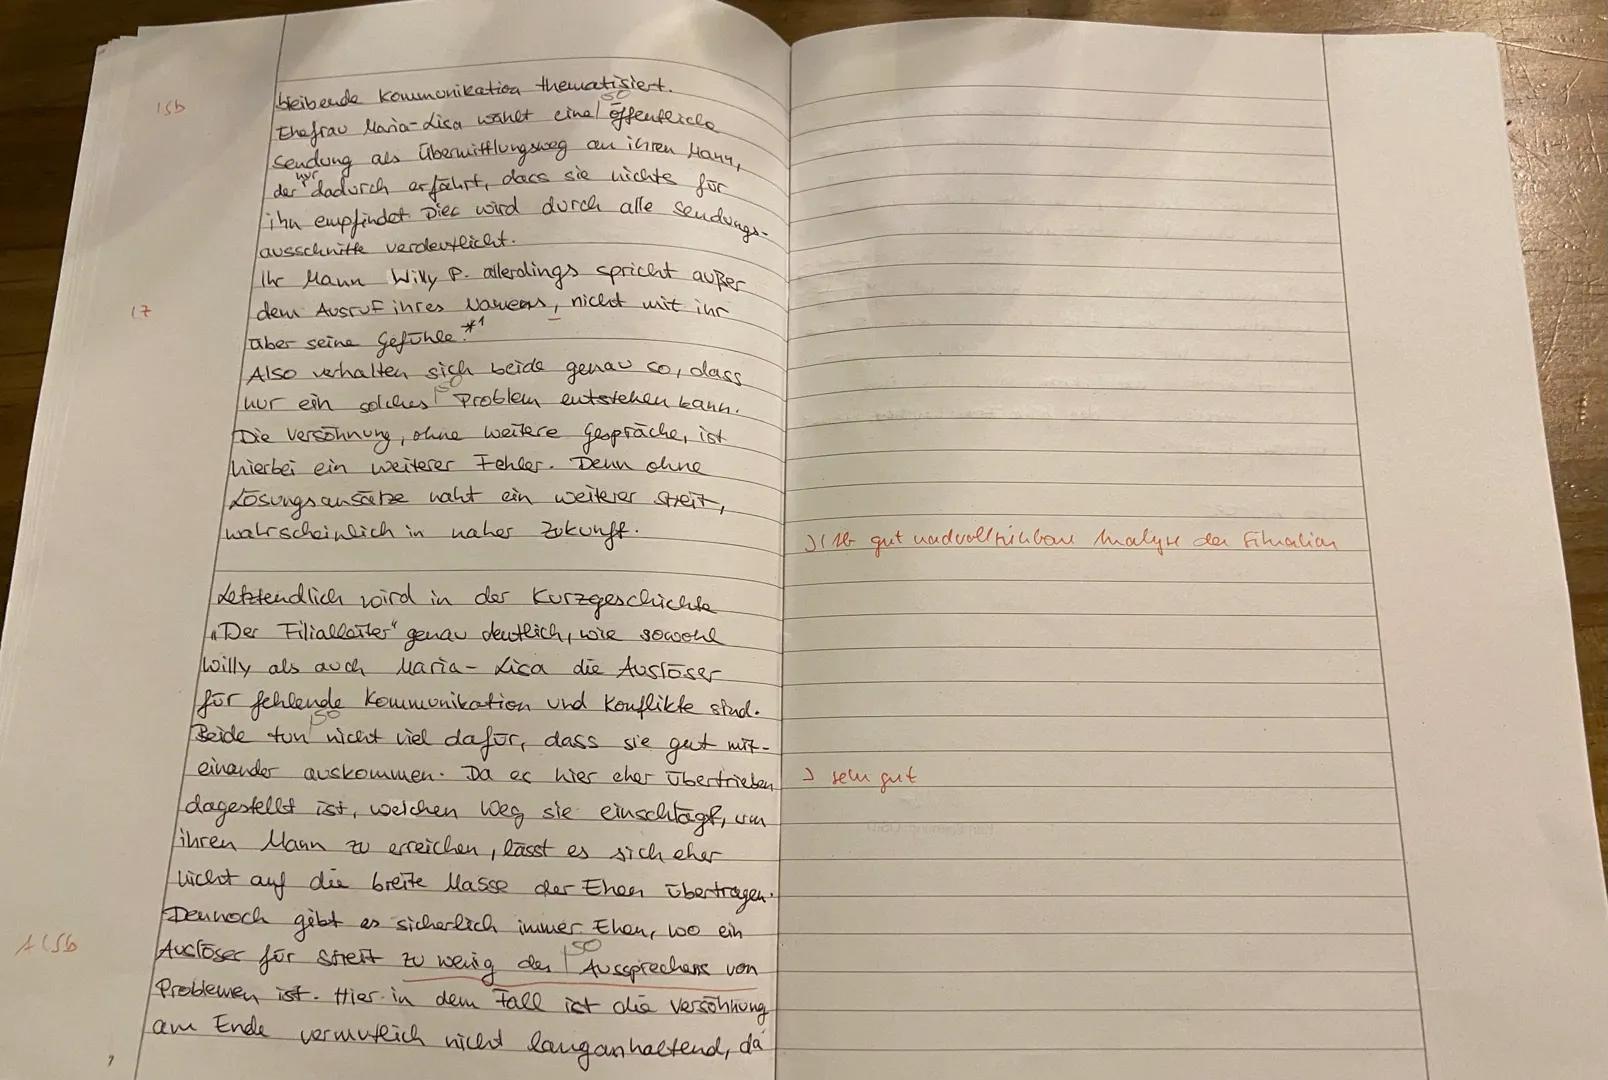 bleibende Kommunikation thematisiert.
Ehefrau Maria-Lisa wählt eine 50 öffentliche
Sendung als Übermittlungsweg an ihren Mann,
der nur dadurch erfährt, dass sie nichts für
ihn empfindet. Dies wird durch alle Sendungs-
ausschnitte verdeutlicht.
Ihr Mann Willy P. allerdings spricht außer
dem Ausruf ihres Namens, nicht mit ihr
über seine Gefühle. *1
Also verhalten sich beide genau so, dass
nur ein solches 50 Problem entstehen kann.
Die Versöhnung, ohne weitere Gespräche, ist
hierbei ein weiterer Fehler. Denn ohne
Lösungsansätze naht ein weiterer Streit,
wahrscheinlich in naher Zukunft.
Letztendlich wird in der Kurzgeschichte
„Der Filialleiter" genau deutlich, wie sowohl
Willy als auch Maria-Lisa die Auslöser
für fehlende Kommunikation und Konflikte sind.
Beide tun 50 nicht viel dafür, dass sie gut mit-
einander auskommen. Da es hier eher übertrieben
dagestellt ist, welchen Weg sie einschlägt, um
ihren Mann zu erreichen, lässt es sich eher
nicht auf die breite Masse der Ehen übertragen.
Dennoch gibt es sicherlich immer Ehen, wo ein
Auslöser für Streit zu wenig des 50 Aussprechens von
Problemen ist. Hier in dem Fall ist die Versöhnung
am Ende vermutlich nicht langanhaltend, da
15b
17
gut nachvollziehbare Analyse der Situation
sehr gut